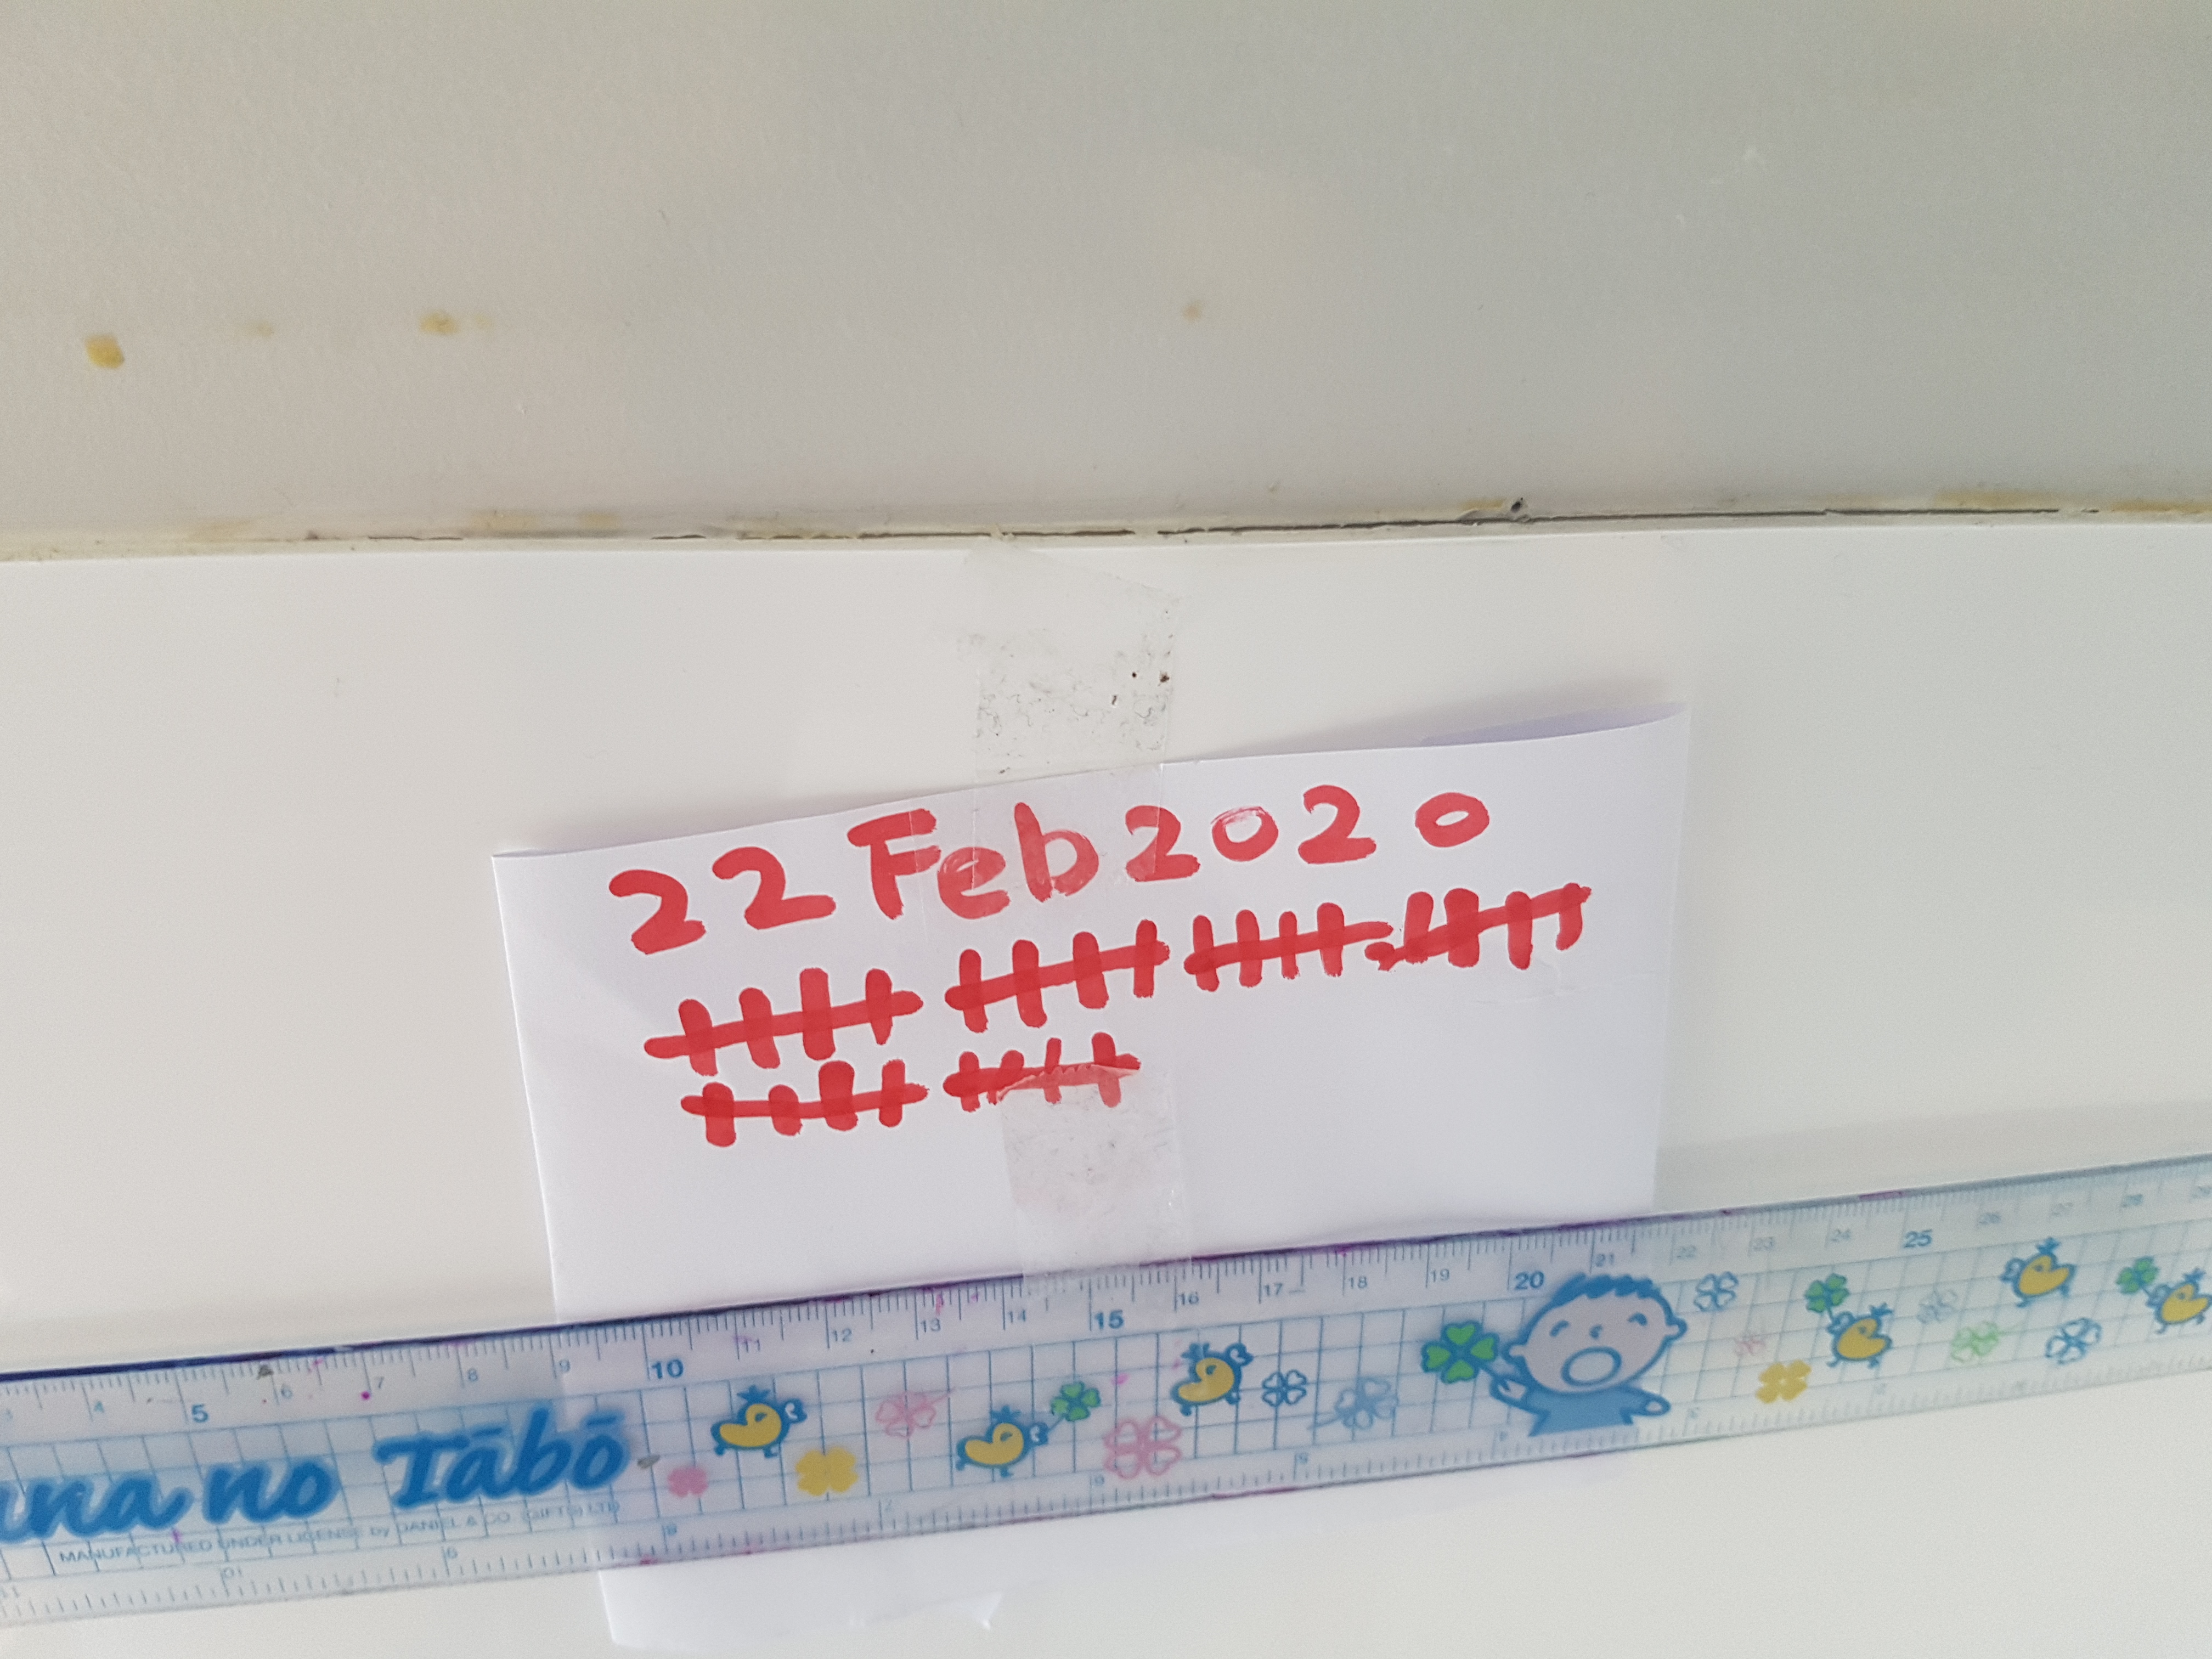 22 Feb 2020
3 4 5 6 7 8 9 10 11 12 13 14 15 16 17 18 19 20 21 22 23 24 25 26 27 28 29
na no Tābō
MANUFACTURED UNDER LICENSE by DANIEL & CO. (GIFTS) LTD
11 10 9 8 7 6 5 4 3 2